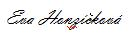 Eva Honzíčková